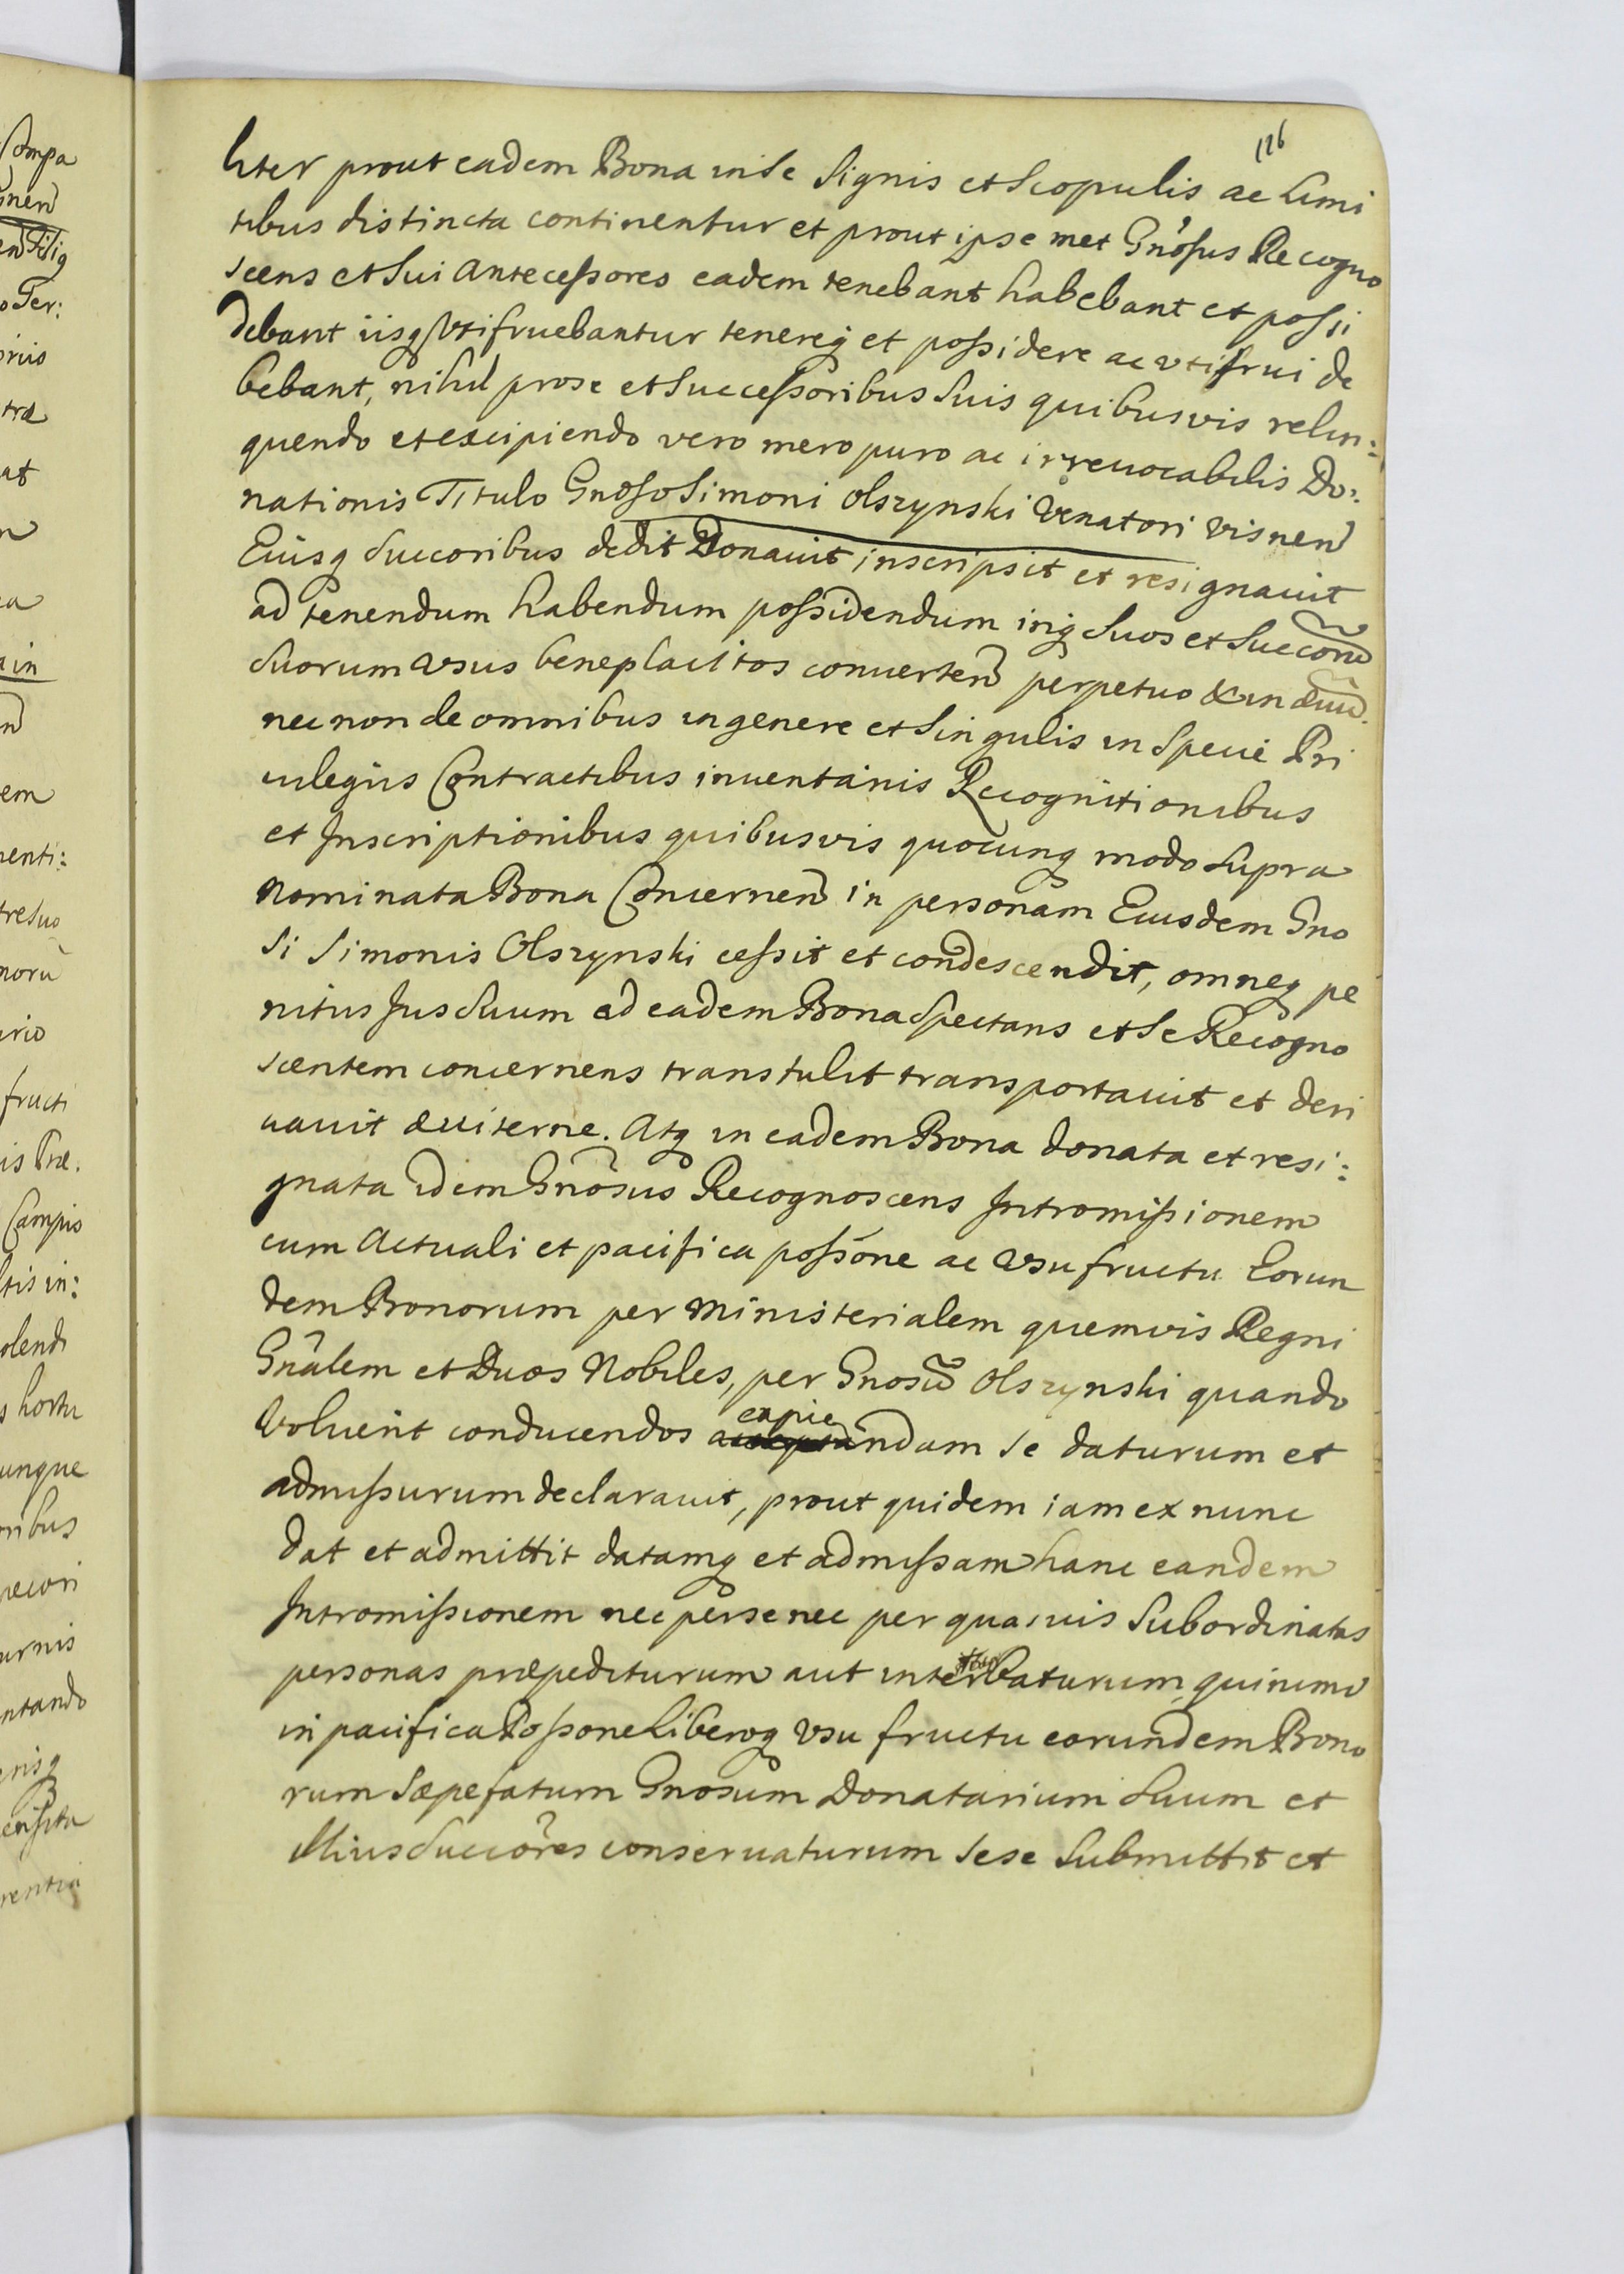 116
liter prout eadem Bona in se Signis et Scopulis ac Limi
tibus distincta continentur et prout ipse met Gnosus Recogno
scens et sui Antecessores eadem tenebant habebant et possi
debant iisq vtifruebantur tenereq et possidere ac vtifrui de
bebant, nihil pro se et Successoribus Suis quibusvis relin:
quendo et excipiendo vero mero puro ac irreuocabilis Do:
nationis Titulo Gnoso Simoni Olszynski Venatori Visnen
Eiusq Succoribus dedit Donauit inscripsit et resignauit
ad tenendum habendum possidendum inq Suos et Succorũ
Suorum Vsus beneplacitos conuerten perpetuo & in æuũ.
nec non de omnibus in genere et Singulis in Specie Pri
uilegiis Contractibus inuentariis Recognitionibus
et Inscriptionibus quibusvis quocunq modo Supra
Nominata Bona Concernen in personam Eiusdem Gno
si Simonis Olszynski cessit et condescendit, omneq pe
nitus Jus Suum ad eadem Bona Spectans et Se Recogno
scentem concernens transtulit transportauit et deri
uauit æuiterne. Atq in eadem Bona donata et resi:
gnata idem Gnõsus Recognoscens Intromissionem
cum Actuali et pacifica possõne ac Vsufructu Eorun
dem Bonorum per Ministerialem quemvis Regni
Gnãlem et Duos Nobiles, per Gnosũ Olszynski quando
Voluerit conducendos capiendam se daturum et
admissurum declarauit, prout quidem iam ex nunc
dat et admittit datamq et admissam hanc eandem
Intromissionem nec per se nec per quasuis Subordinatas
personas præpediturum aut inturbaturum, quinimo
in pacifica Possone Liberoq Vsu fructu eorundem Bono
rum Sæpefatum Gnosum Donatarium Suum et
Illius Succõres conseruaturum sese Submittit et